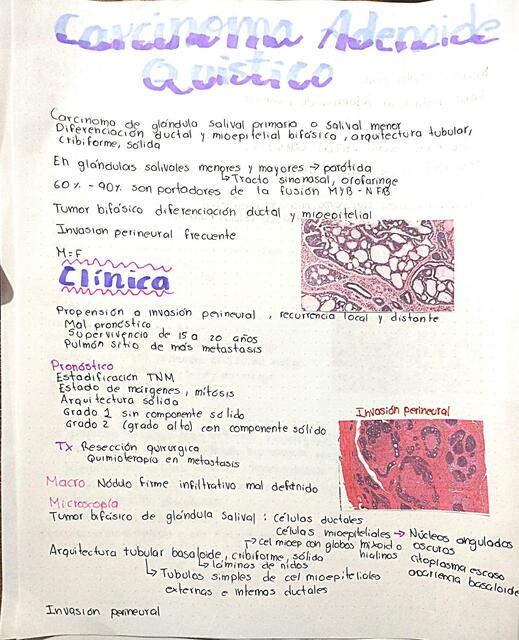 Carcinoma Adenoide
Quístico
Carcinoma de glándula salival primaria o salival menor
Diferenciación ductal y mioepitelial bifásica, arquitectura tubular,
cribiforme, sólida
En glándulas salivales menores y mayores → parótida
↳ Tracto sinonasal, orofaringe
60% - 90% son portadores de la fusión MYB-NFB
Tumor bifásico diferenciación ductal y mioepitelial
Invasión perineural frecuente
M=F
Clínica
Propensión a invasión perineural, recurrencia local y distante
Mal pronóstico
Supervivencia de 15 a 20 años
Pulmón sitio de más metastasis
Pronóstico
Estadificación TNM
Estado de márgenes, mitosis
Arquitectura sólida
Grado 1 sin componente solido
Grado 2 (grado alto) con componente sólido
Invasión perineural
Tx Resección quirurgica
Quimioterapia en metastasis
Macro Nódulo firme infiltrativo mal definido
Microscopía
Tumor bifásico de glándula salival: Células ductales
Células mioepiteliales → Núcleos angulados
oscuros
citoplasma escaso
apariencia basaloide
↱ cel mioep con globos mixoid o
hialinos
Arquitectura tubular basaloide, cribiforme, sólido
↳ láminas de nidos
↳ Tubulos simples de cel mioepiteliales
externas e internos ductales
Invasión perineural